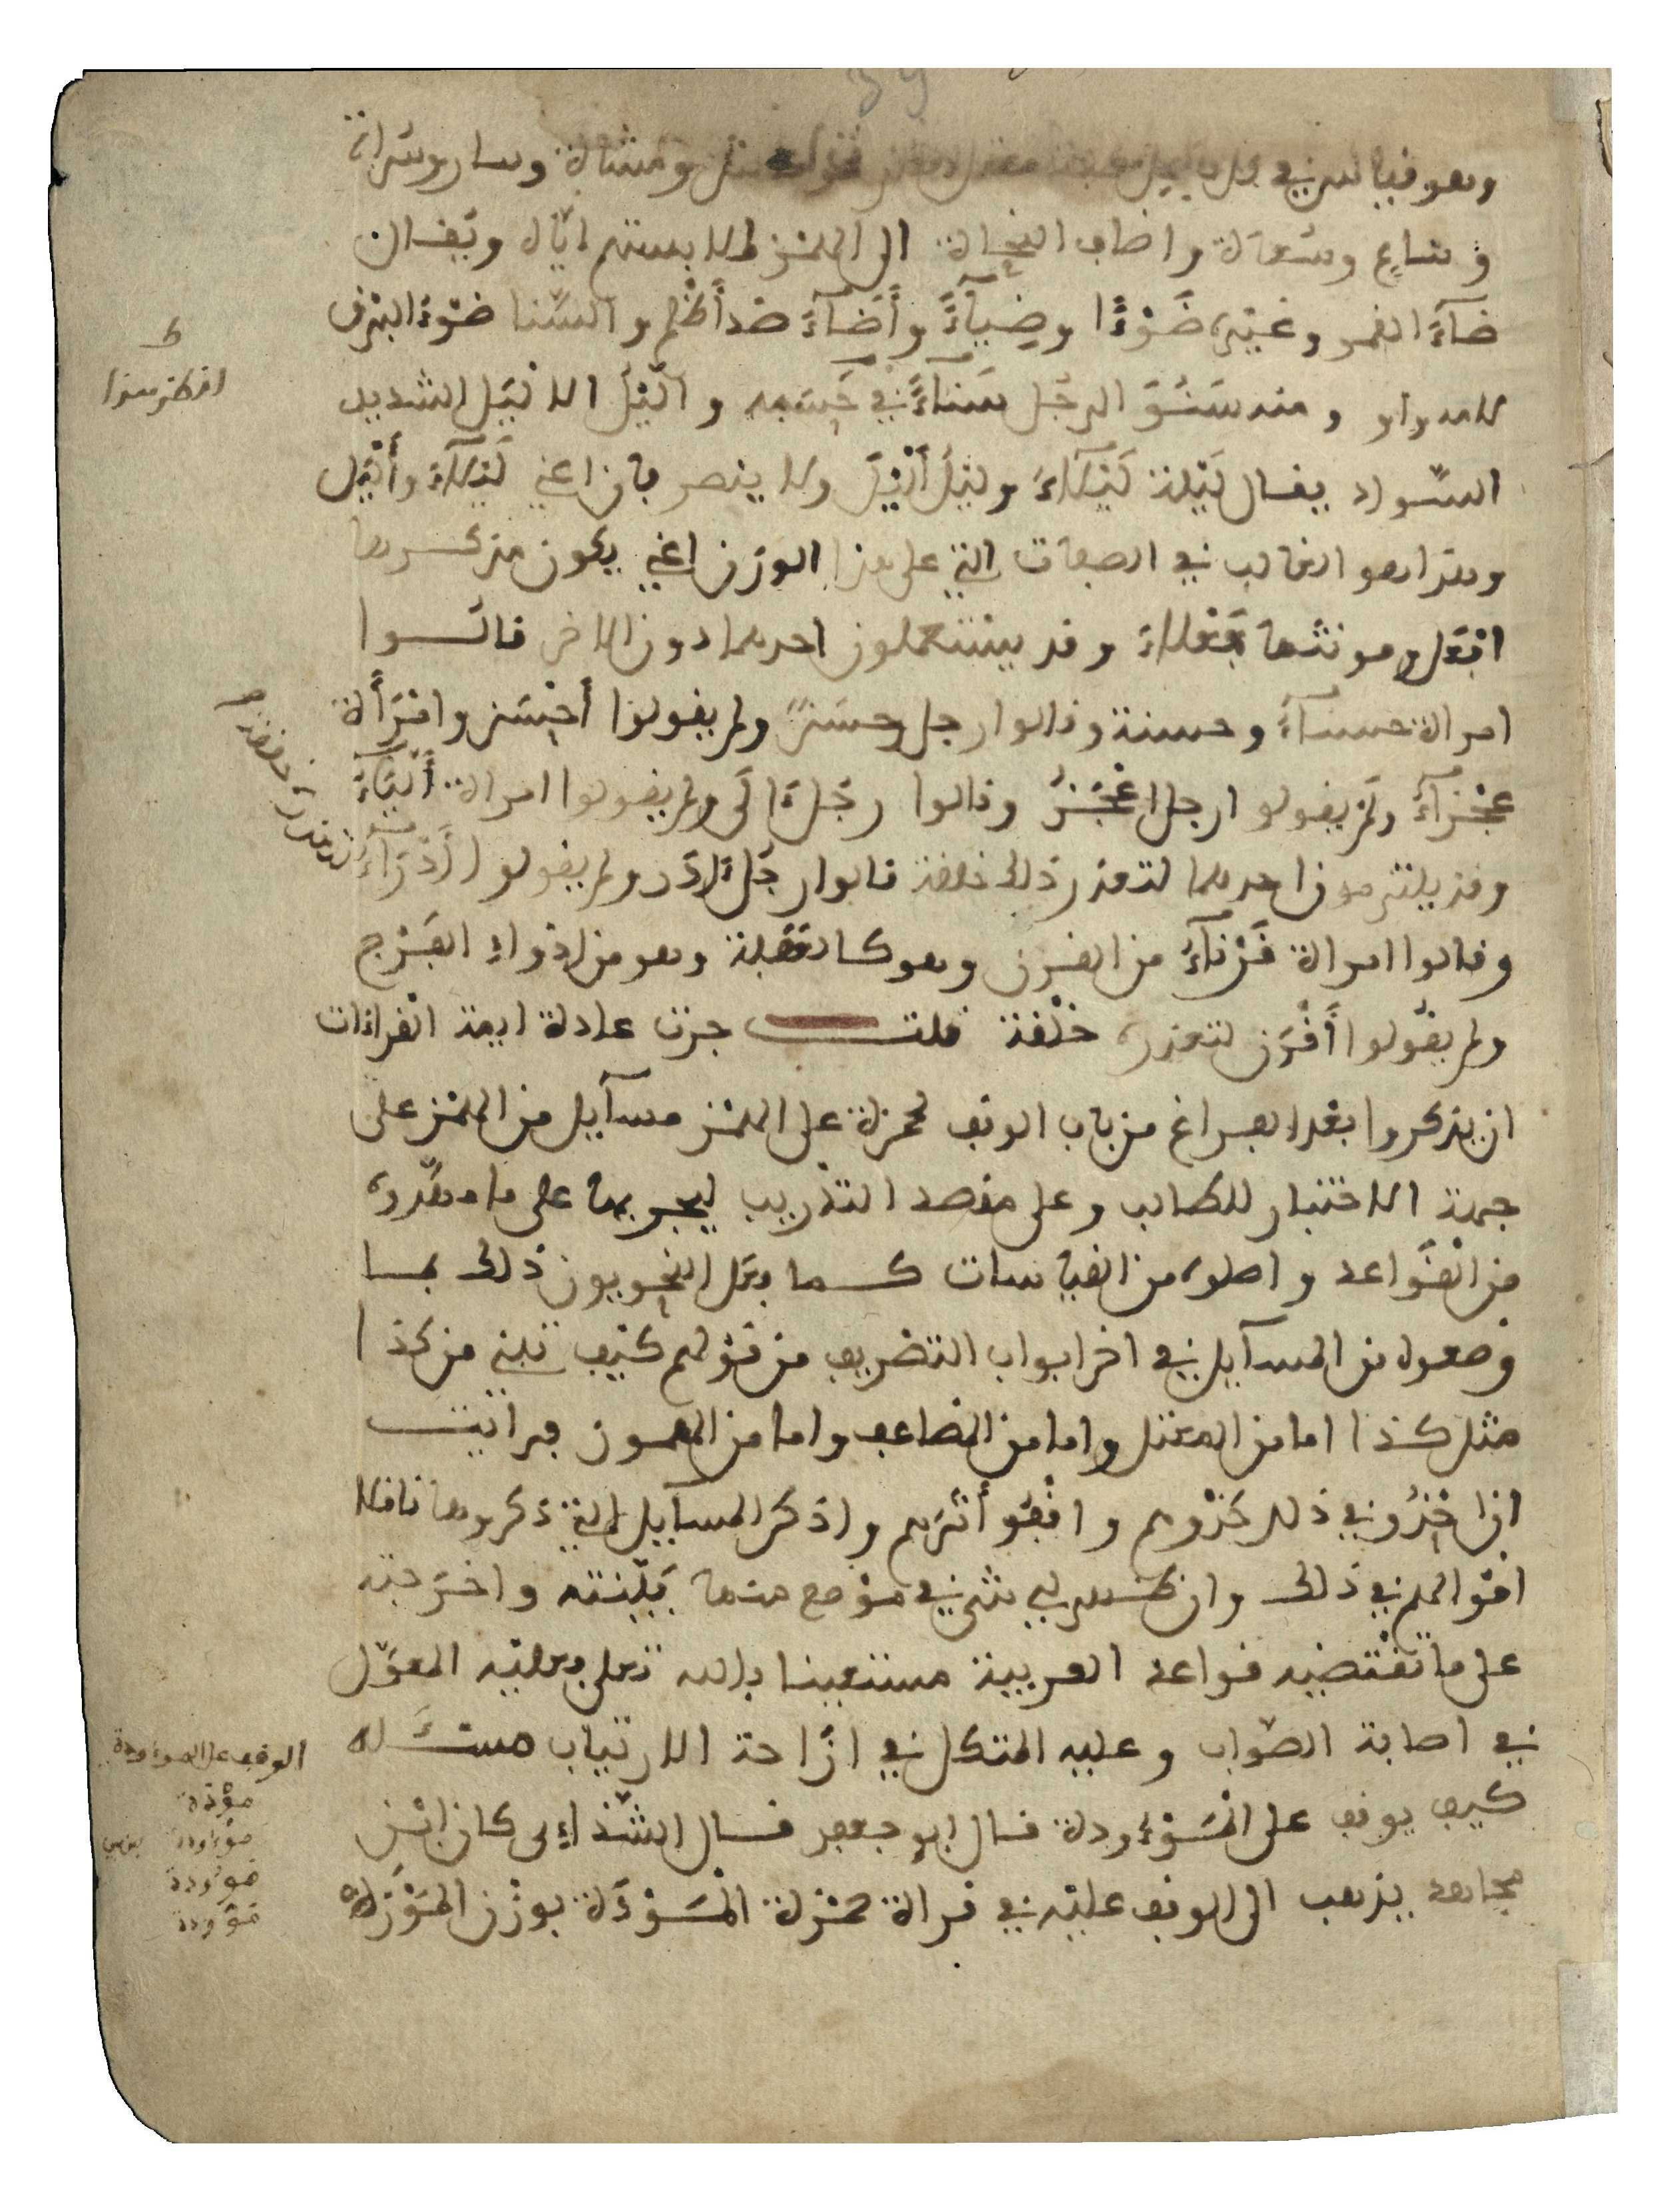 وهو قياس في كل فاعل معتل اللام نحو ومشاة وسار وسراة
وساع وسعاة واضاف النحاة الى الهمز لملابستهم اياه ويقال
ضآءَ القمر وغيره ضَوْءًا وضِيآءً وأضآءَ ضد أظلم والسَّنا ضَوْءُ البرق
ومنه سَنُوَ الرجُل سَناءً في حَسَبه والَّيْلُ الالْيَل الشديد
السّواد يقال لَيْلة لَيْلآءُ ولَيْلٌ ألْيَلُ ولا ينصرفان اعني لَيْلآءُ وأَلْيَل
وهذا هو الغالب في الصفات التي على هذا الوزن اعني يكون مذكرها
افْعَل ومونثها فَعْلاءُ وقد يستعملون احدهما دون الاخر قالوا
امراة حسنآءُ وحسنة وقالوا رجل حسَنٌ ولم يقولوا أحْسَن وامْرَأة
عَجْزآءُ ولم يقولوا رجل اعْجَزُ وقالوا رجُلٌ آلَى ولم يقولوا امراة أَلْيآءُ
وقد يلتزمون احدهما لتعذر ذلك خلقة قالوا رجُلٌ آدَر ولم يقولوا أَدْرَآءُ
وقالوا امراة قَرْنآءُ من القرن وهو كالعَفَلة وهو من ادواء الفَرْج
ولم يقولوا أَقْرَن لتعذره خلْقة قلت جرت عادة ايمة القراءات
ان يذكروا بعد الفراغ من باب الوقف لحمزة على الهمز مسآيل من الهمز على
جهة الاختبار للطالب وعلى مقصد التدريب ليجريها على ما مهّدوه
من القَواعد واصلوه من القياسات كما فعل النحويون ذلك بما
وضعوه من المسآيل في اخر ابواب التصريف من قولهم كيف تبني من كذا
مثل كذا اما من المعتل واما من المضاعف واما من المهموز فرايت
ان احْذُوَ في ذلك حَذْوهم واقْفُوَ أثَرهم واذكر المسآيل التي ذكروها ناقلا
اقوالهم في ذلك وان ظهر لي شيء في موْضع منها بَيَّنته واخرجته
على ما تقْتضيه قواعد العربية مستعينا بالله تعلى فعليه المعوّل
في اصابة الصّواب وعليه المتكل في ازاحة الارتياب مسئلة
كيف يوقف على الْمَوْءُودة قال ابو جعفر قال الشذاءي كان ابْن
مجاهد يذهب الى الوقف عليه في قراة حمزة الْمَوْدَة بوزْن الْمَوْزَة
لتعذره خلقة
الوقف على الموءودة
موْدة
موءودة
موودة
موّودة